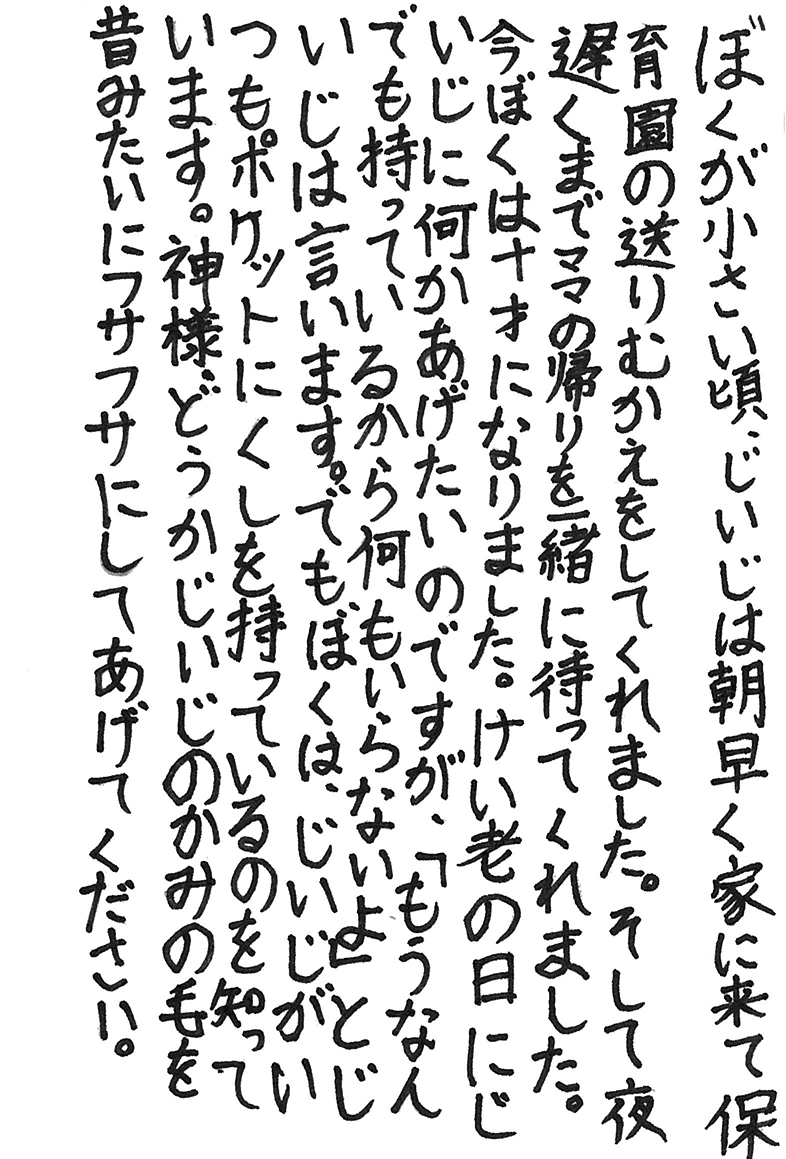 ぼくが小さい頃、じいじは朝早く家に来て保
育園の送りむかえをしてくれました。そして夜
遅くまでママの帰りを一緒に待ってくれました。
今ぼくは十才になりました。けい老の日にじ
いじに何かあげたいのですが、「もうなん
でも持っているから何もいらないよ」とじ
いじは言います。でもぼくは、じいじがい
つもポケットにくしを持っているのを知って
います。神様、どうかじいじのかみの毛を
昔みたいにフサフサにしてあげてください。